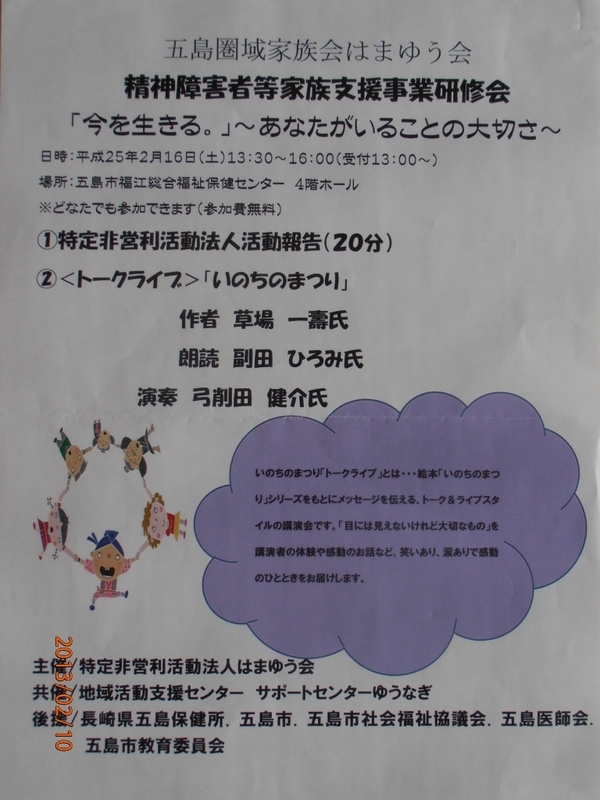 五島圏域家族会はまゆう会
精神障害者等家族支援事業研修会
「今を生きる。」～あなたがいることの大切さ～
日時:平成25年2月16日(土)13:30～16:00(受付13:00～)
場所:五島市福江総合福祉保健センター 4階ホール
※どなたでも参加できます(参加費無料)
①特定非営利活動法人活動報告(20分)
②<トークライブ>「いのちのまつり」
作者 草場 一壽氏
朗読 副田 ひろみ氏
演奏 弓削田 健介氏
いのちのまつり「トークライブ」とは・・・絵本「いのちのまつ
り」シリーズをもとにメッセージを伝える、トーク&ライブスタ
イルの講演会です。「目には見えないけれど大切なもの」を
講演者の体験や感動のお話など、笑いあり、涙ありで感動
のひとときをお届けします。
主催/特定非営利活動法人はまゆう会
共催/地域活動支援センター サポートセンターゆうなぎ
後援/長崎県五島保健所. 五島市. 五島市社会福祉協議会. 五島医師会.
五島市教育委員会
2013/02/10